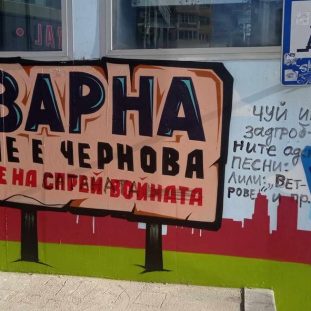 ВАРНА
НЕ Е ЧЕРНОВА
Е НА СПРЕЙ ВОЙНАТА
ЧУЙ И
ЗАДГРОБ-
НИТЕ
ПЕСНИ:
ЛИЛИ: „ВЕТ-
РОВЕ“ И ПР